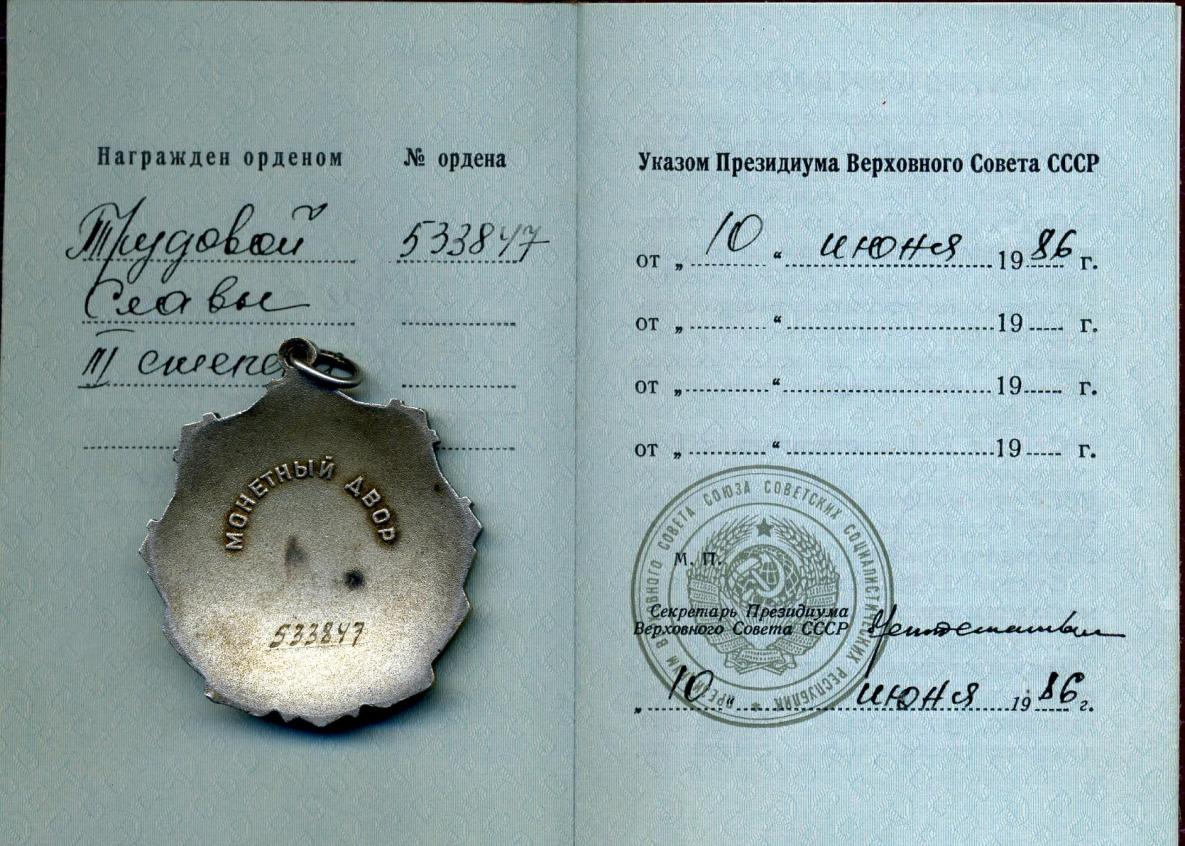 Награжден орденом № ордена
Трудовой 533847
Славы
III степе
МОНЕТНЫЙ ДВОР
533847
Указом Президиума Верховного Совета СССР
от „ 10 “ июня 1986 г.
от „ “ 19 г.
от „ “ 19 г.
от „ “ 19 г.
М. П.
ВНОГО СОВЕТА СОЮЗА СОВЕТСКИХ СОЦИАЛИСТИЧЕСКИХ РЕСПУБЛИК
Секретарь Президиума
Верховного Совета СССР
„ 10 “ июня 1986 г.